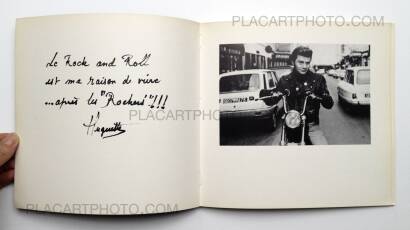 PLACARTPHOTO.COM
Le Rock and Roll
est ma raison de vivre
...après les "Rockers"!!!
Huguette
PLACARTPHOTO.COM
PLACARTPHOTO.COM